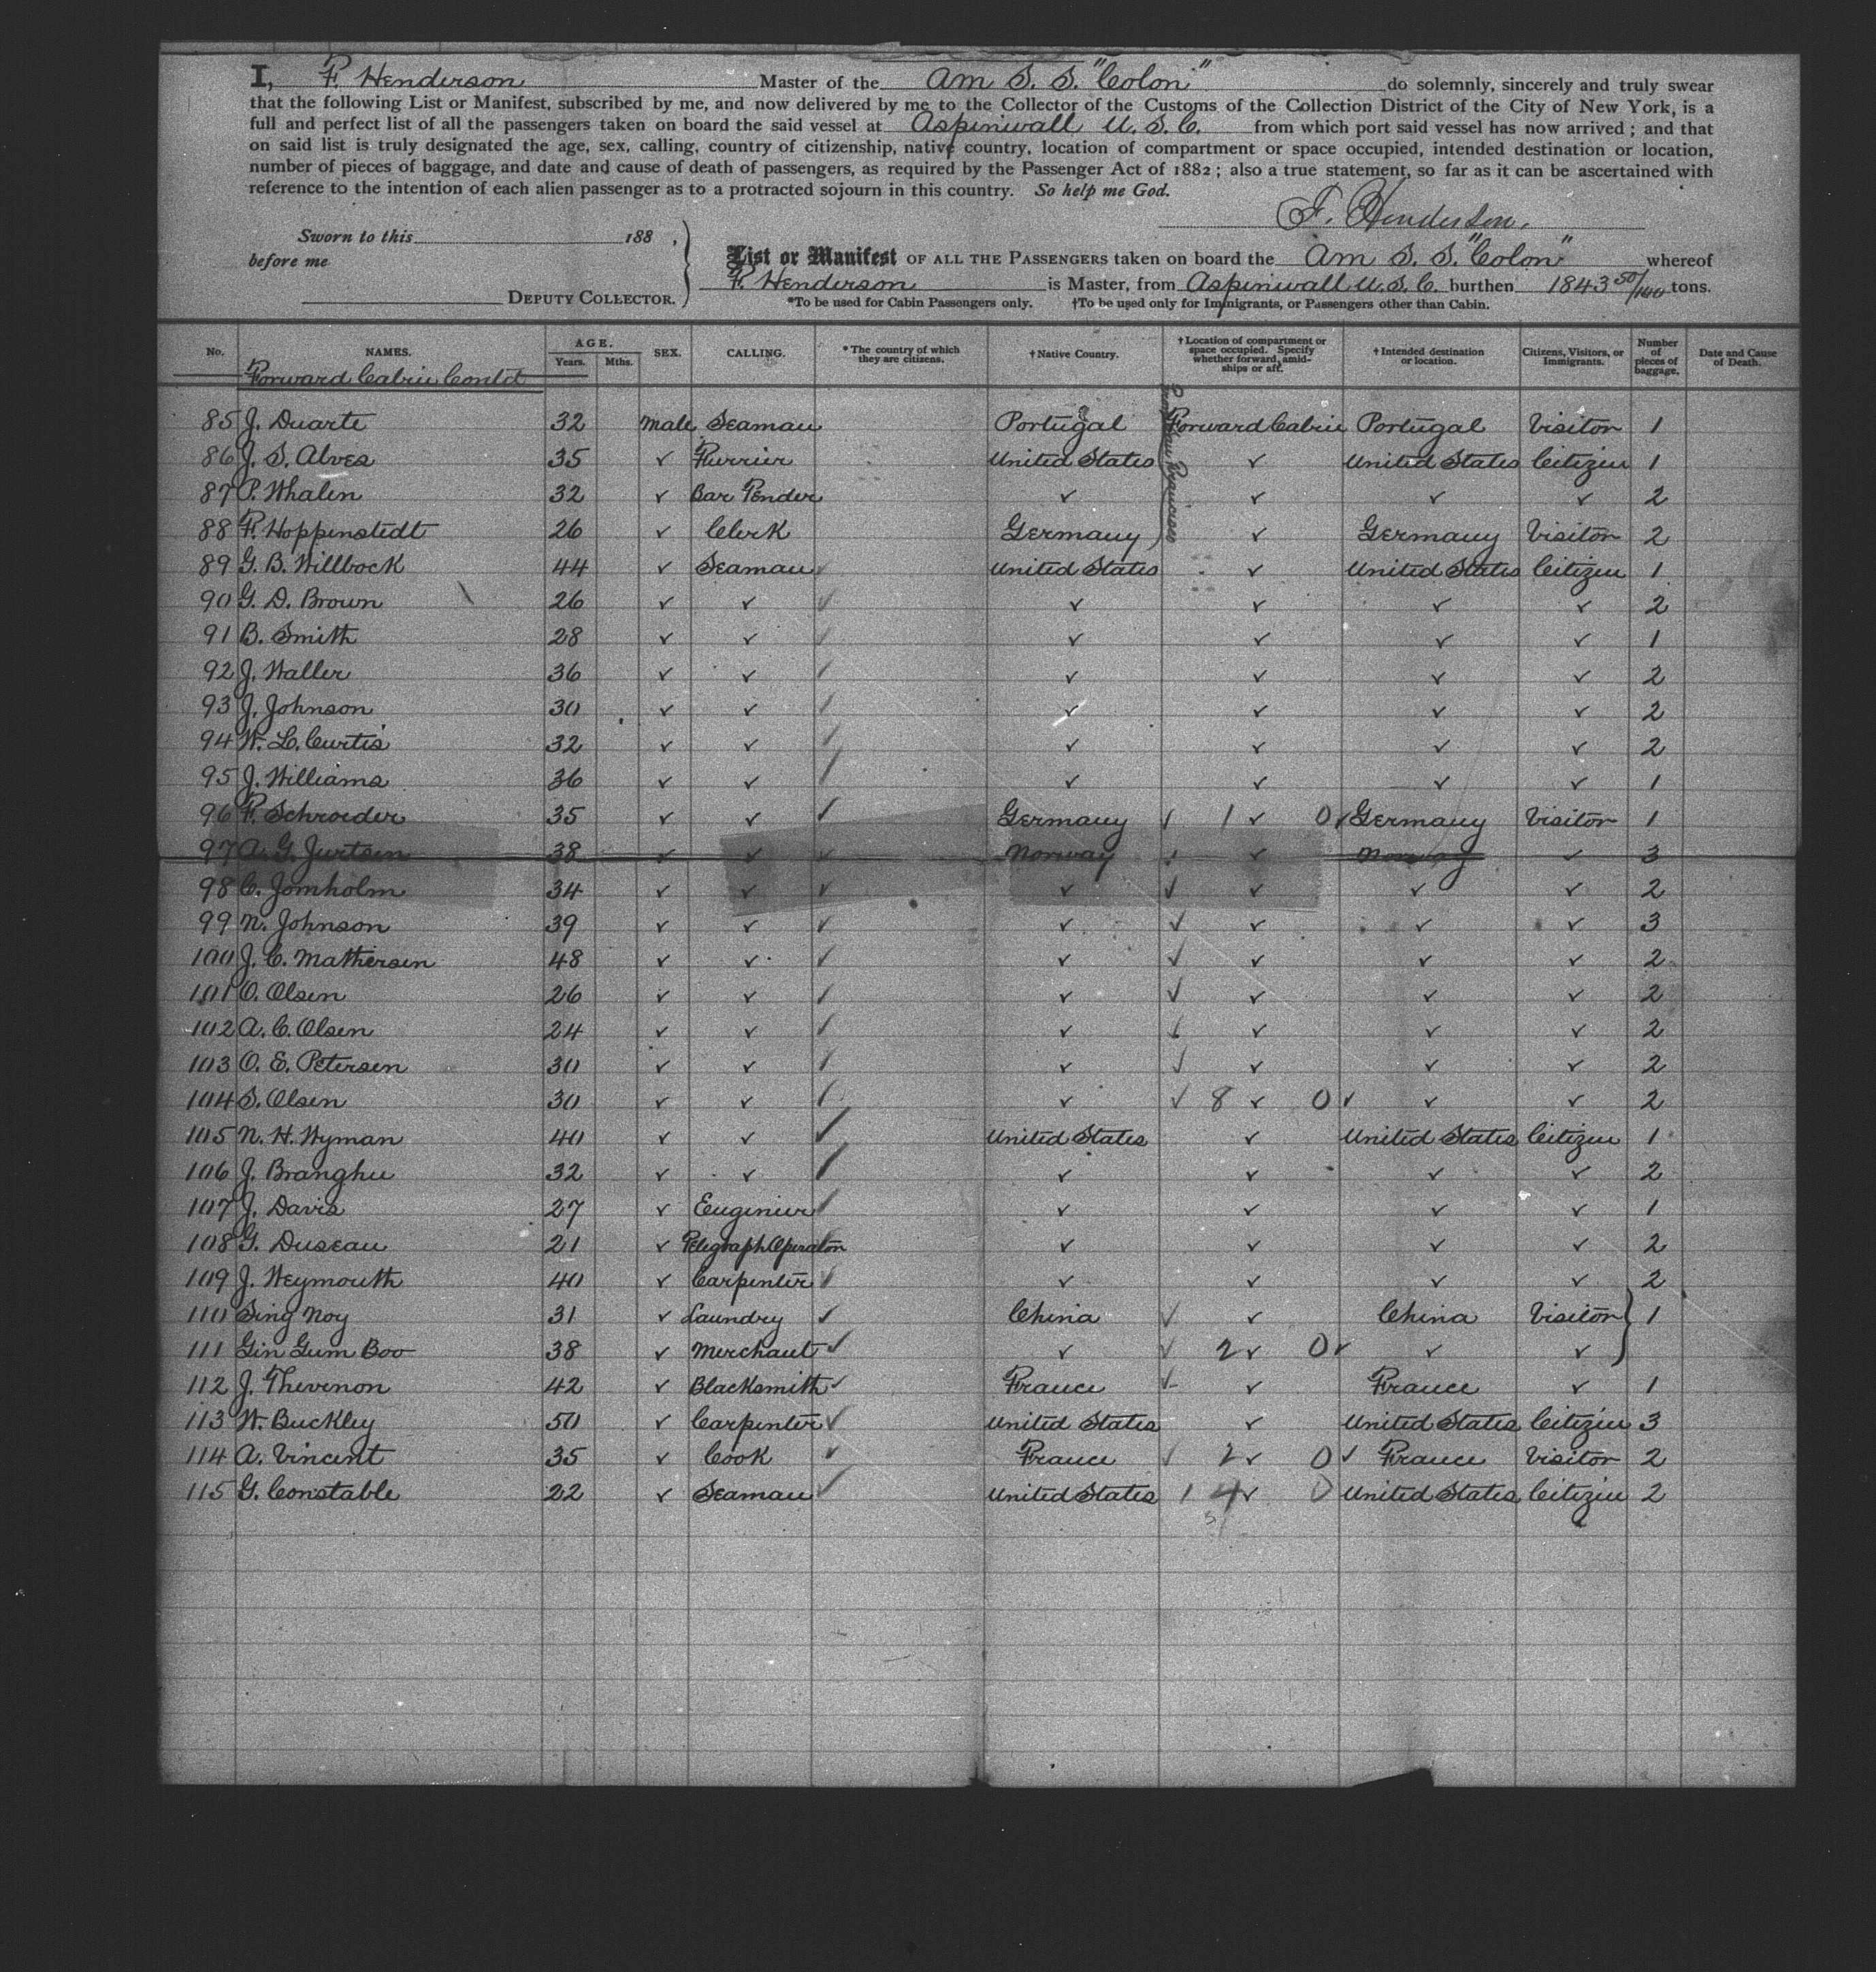 I, F. Henderson Master of the Am S. S. "Colon" do solemnly, sincerely and truly swear
that the following List or Manifest, subscribed by me, and now delivered by me to the Collector of the Customs of the Collection District of the City of New York, is a
full and perfect list of all the passengers taken on board the said vessel at Aspinwall U. S. C. from which port said vessel has now arrived; and that
on said list is truly designated the age, sex, calling, country of citizenship, native country, location of compartment or space occupied, intended destination or location,
number of pieces of baggage, and date and cause of death of passengers, as required by the Passenger Act of 1882; also a true statement, so far as it can be ascertained with
reference to the intention of each alien passenger as to a protracted sojourn in this country. So help me God.
F. Henderson.
Sworn to this 188 ,
before me
DEPUTY COLLECTOR.
List or Manifest OF ALL THE PASSENGERS taken on board the Am S. S. "Colon" whereof
F. Henderson is Master, from Aspinwall U.S.C. burthen 1843 50/100 tons.
*To be used for Cabin Passengers only. †To be used only for Immigrants, or Passengers other than Cabin.
No. NAMES. AGE. Years. Mths. SEX. CALLING. *The country of which they are citizens. †Native Country. †Location of compartment or space occupied. Specify whether forward, amidships or aft. †Intended destination or location. Citizens, Visitors, or Immigrants. Number of pieces of baggage. Date and Cause of Death.
Forward Cabin Contd
85 J. Duarte 32 Male Seaman Portugal Forward Cabin Portugal Visitor 1
86 J. S. Alves 35 ✓ Furrier United States ✓ United States Citizen 1
87 P. Whalen 32 ✓ Bar Tender ✓ ✓ ✓ ✓ 2
88 F. Hoppenstedt 26 ✓ Clerk Germany ✓ Germany Visitor 2
89 G. B. Willbock 44 ✓ Seaman ✓ United States ✓ United States Citizen 1
90 G. D. Brown 26 ✓ ✓ ✓ ✓ ✓ ✓ ✓ 2
91 B. Smith 28 ✓ ✓ ✓ ✓ ✓ ✓ ✓ 1
92 J. Waller 36 ✓ ✓ ✓ ✓ ✓ ✓ ✓ 2
93 J. Johnson 30 ✓ ✓ ✓ ✓ ✓ ✓ ✓ 2
94 W. L. Curtis 32 ✓ ✓ ✓ ✓ ✓ ✓ ✓ 2
95 J. Williams 36 ✓ ✓ ✓ ✓ ✓ ✓ ✓ 1
96 F. Schroeder 35 ✓ ✓ ✓ Germany ✓ 1 ✓ 0 ✓ Germany Visitor 1
97 A. G. Jurtsen 38 ✓ ✓ ✓ Norway ✓ ✓ Norway ✓ 3
98 C. Jomholm 34 ✓ ✓ ✓ ✓ ✓ ✓ ✓ ✓ 2
99 N. Johnson 39 ✓ ✓ ✓ ✓ ✓ ✓ ✓ ✓ 3
100 J. C. Mathersen 48 ✓ ✓ ✓ ✓ ✓ ✓ ✓ ✓ 2
101 O. Olsen 26 ✓ ✓ ✓ ✓ ✓ ✓ ✓ ✓ 2
102 A. C. Olsen 24 ✓ ✓ ✓ ✓ ✓ ✓ ✓ ✓ 2
103 O. E. Petersen 30 ✓ ✓ ✓ ✓ ✓ ✓ ✓ ✓ 2
104 S. Olsen 30 ✓ ✓ ✓ ✓ ✓ 8 ✓ 0 ✓ ✓ ✓ 2
105 N. H. Wyman 40 ✓ ✓ ✓ United States ✓ United States Citizen 1
106 J. Branghu 32 ✓ ✓ ✓ ✓ ✓ ✓ ✓ 2
107 J. Davis 27 ✓ Engineer ✓ ✓ ✓ ✓ ✓ 1
108 G. Duseau 21 ✓ Telegraph Operator ✓ ✓ ✓ ✓ 2
109 J. Weymouth 40 ✓ Carpenter ✓ ✓ ✓ ✓ ✓ 2
110 Sing Noy 31 ✓ Laundry ✓ China ✓ ✓ China Visitor 1
111 Gin Gum Boo 38 ✓ Merchant ✓ ✓ ✓ 2 ✓ 0 ✓ ✓ ✓
112 J. Thevenon 42 ✓ Blacksmith ✓ France ✓ ✓ France ✓ 1
113 W. Buckley 50 ✓ Carpenter ✓ United States ✓ United States Citizen 3
114 A. Vincent 35 ✓ Cook ✓ France ✓ 2 ✓ 0 ✓ France Visitor 2
115 G. Constable 22 ✓ Seaman ✓ United States 1 4 ✓ 0 United States Citizen 2